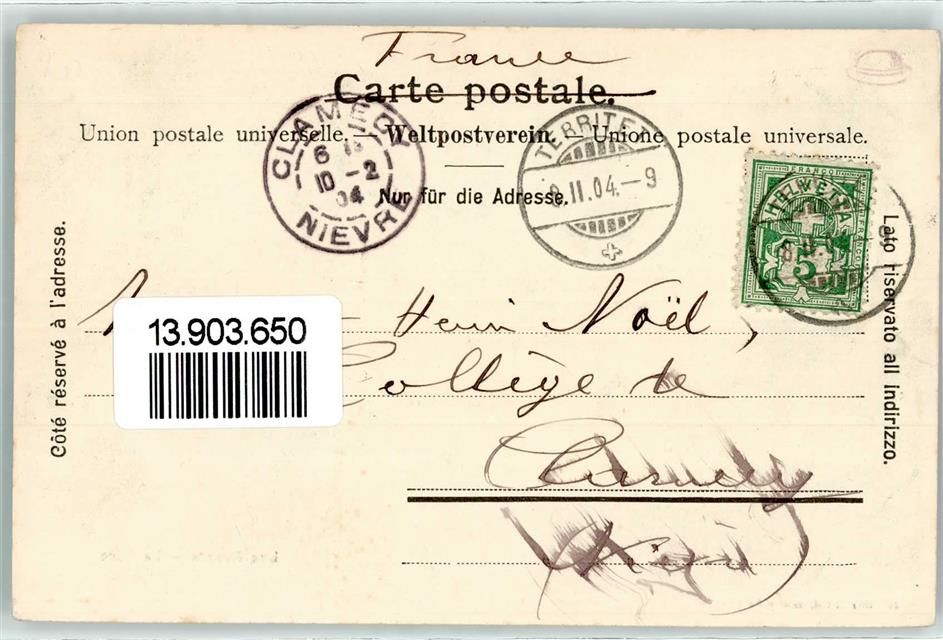 France
Carte postale.
Union postale universelle. — Weltpostverein. — Unione postale universale.
Nur für die Adresse.
CLAMECY
6
10 -2
04
NIEVRE
TERRITET
9.II.04.-9
HELVETIA
FRANCO
5
Côté réservé à l'adresse.
Lato riservato all indirizzo.
13.903.650
Henri Noël,
Collège de
Clamecy